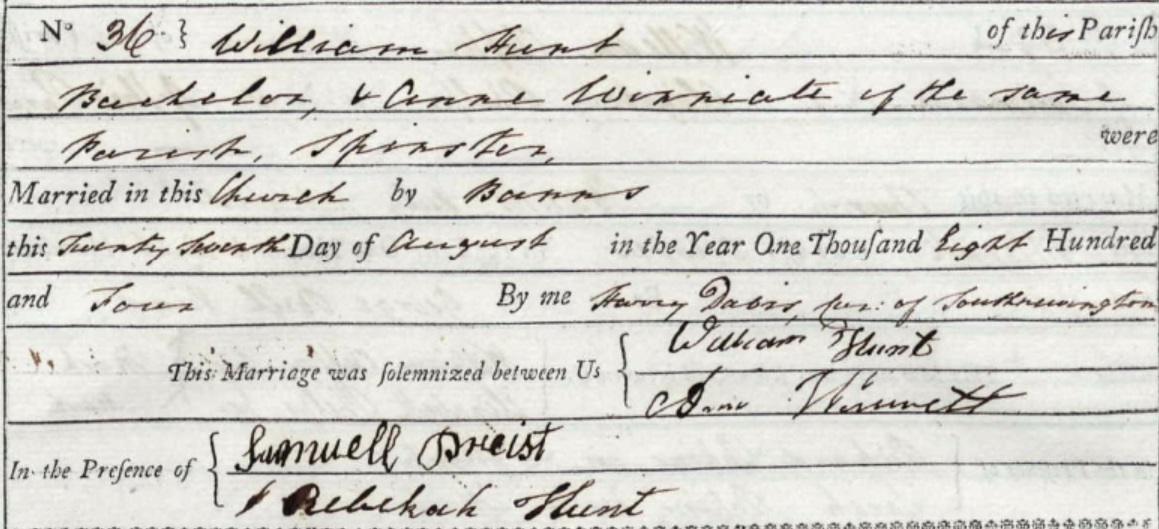 No 36 } William Hunt of this Pariſh
Bachelor, & Anne Winniate of the same
Parish, Spinster, were
Married in this Church by Banns
this Twenty Seventh Day of August in the Year One Thouſand Eight Hundred
and Four By me Harry Davis, Cur: of Southnewington
This Marriage was ſolemnized between Us { William Hunt
Ann Winnett
In the Preſence of { Samuell Preist
Rebekah Hunt